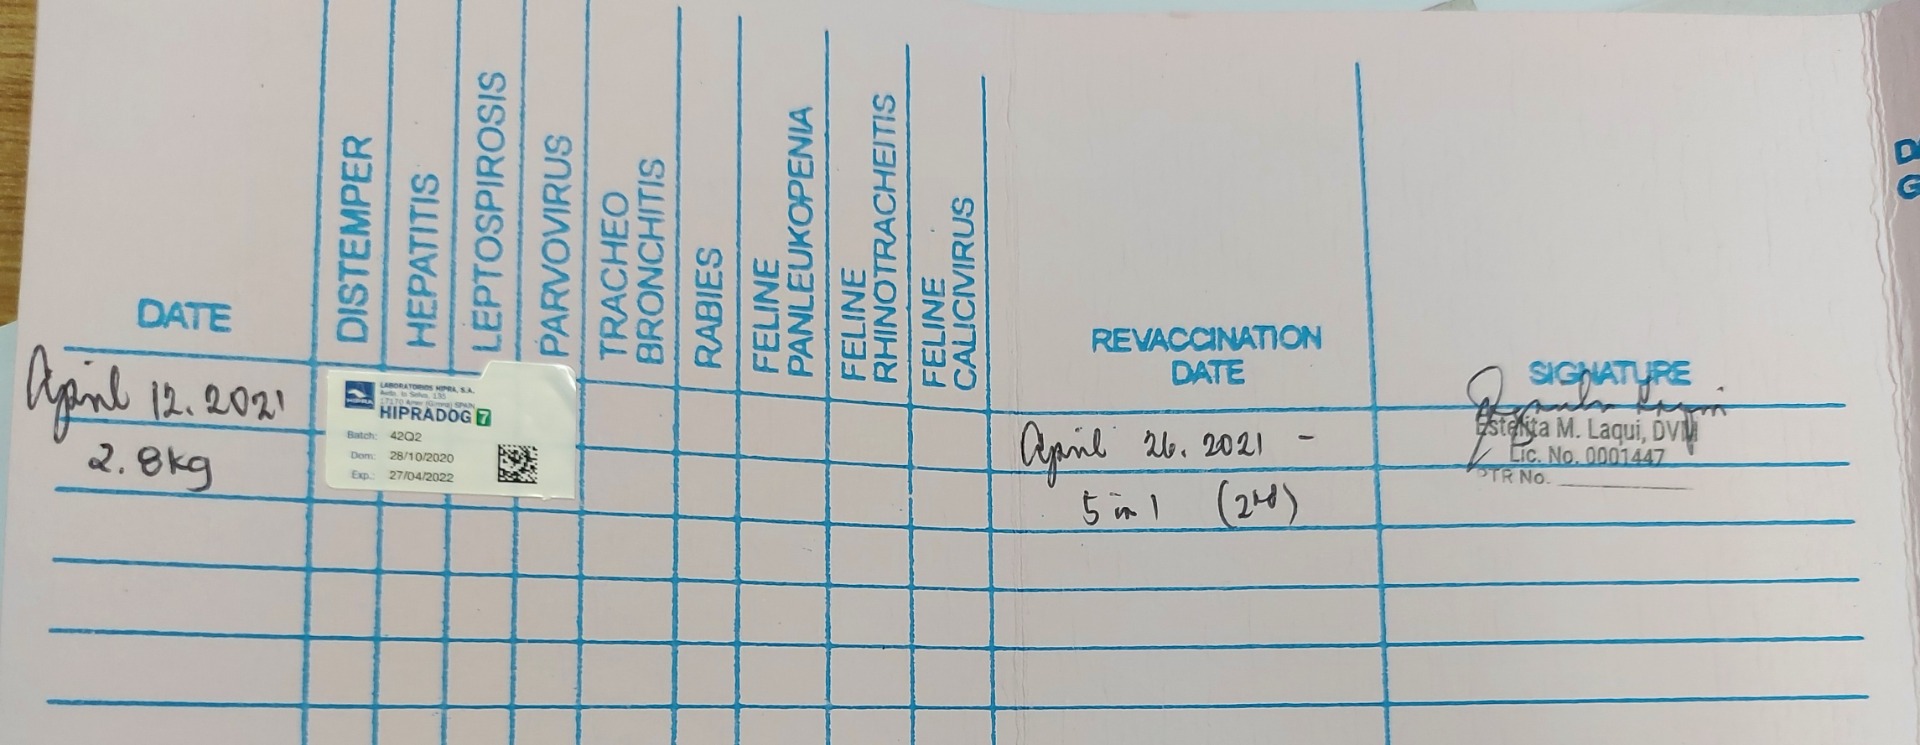 DATE
DISTEMPER
HEPATITIS
LEPTOSPIROSIS
PARVOVIRUS
TRACHEO
BRONCHITIS
RABIES
FELINE
PANLEUKOPENIA
FELINE
RHINOTRACHEITIS
FELINE
CALICIVIRUS
REVACCINATION
DATE
SIGNATURE
April 12. 2021
2.8kg
HIPRA
LABORATORIOS HIPRA, S.A.
Avda. la Selva, 135
17170 Amer (Girona) SPAIN
HIPRADOG 7
Batch: 42Q2
Dom: 28/10/2020
Exp.: 27/04/2022
April 26. 2021 -
5 in 1 (2nd)
Estelita M. Laqui, DVM
Lic. No. 0001447
PTR No.
D
G